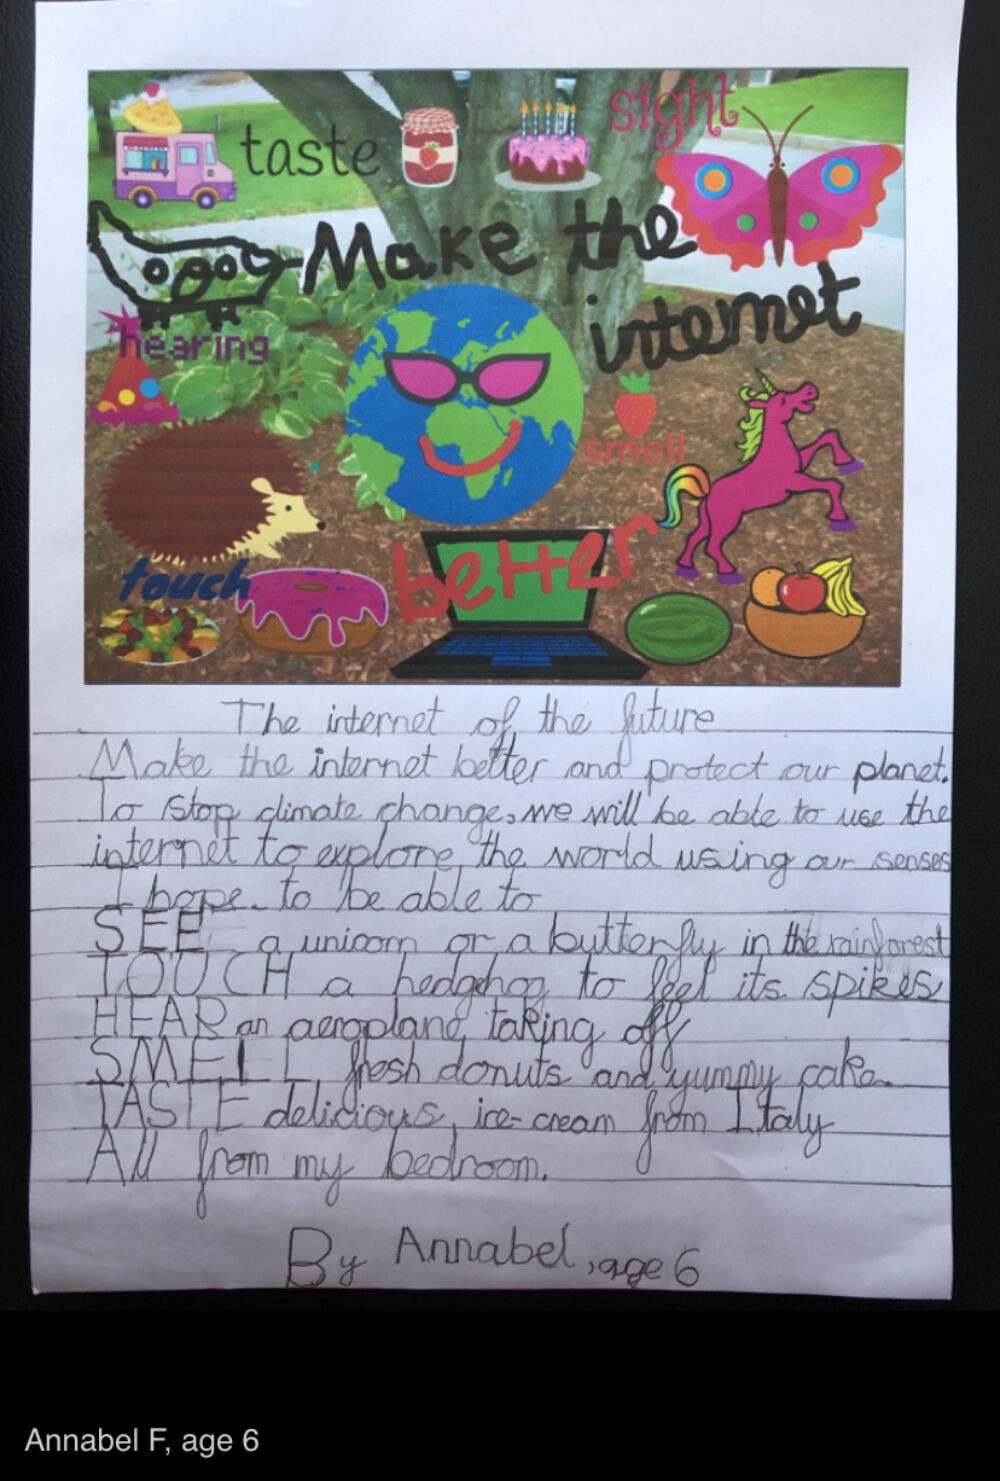 taste
sight
Make the
internet
hearing
smell
better
touch
The internet of the future
Make the internet better and protect our planet.
To stop climate change, we will be able to use the
internet to explore the world using our senses
I hope to be able to
SEE a unicorn or a butterfly in the rainforest
TOUCH a hedgehog to feel its spikes
HEAR an aeroplane taking off
SMELL fresh donuts and yummy cake.
TASTE delicious ice-cream from Italy
All from my bedroom.
By Annabel, age 6
Annabel F, age 6